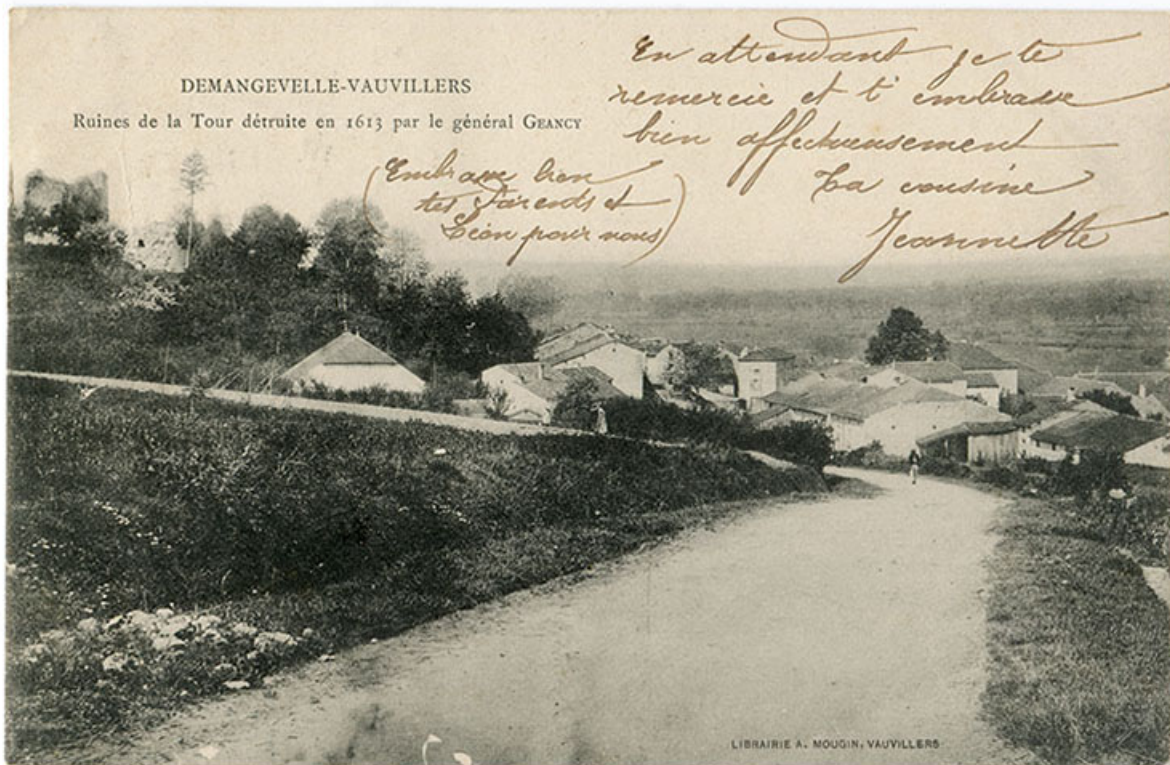 DEMANGEVELLE-VAUVILLERS
Ruines de la Tour détruite en 1613 par le général GEANCY
En attendant je te
remercie et t'embrasse
bien affectueusement
Ta cousine
Jeannette
(Embrasse bien
tes Parents et
Léon pour nous)
LIBRAIRIE A. MOUGIN, VAUVILLERS